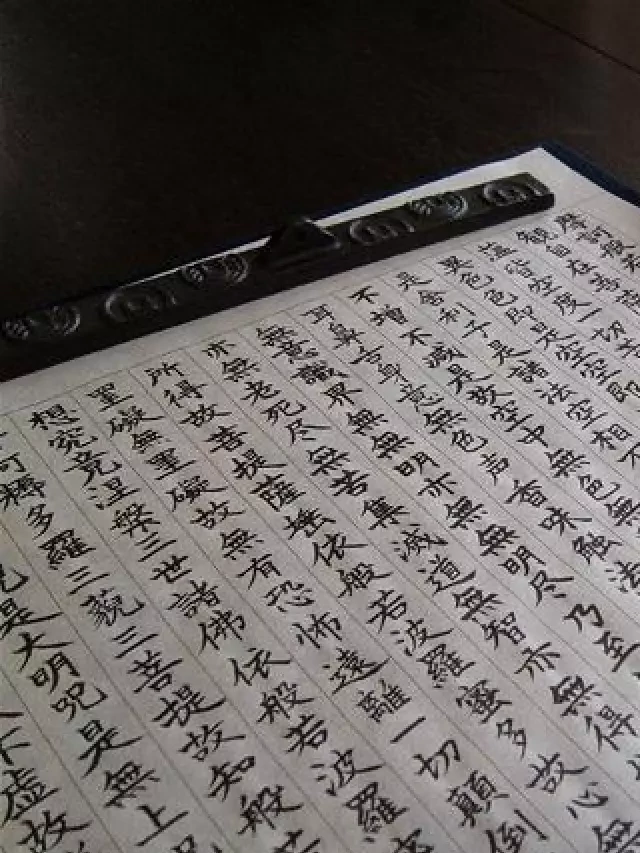 摩訶般若
觀自在菩薩
蘊皆空度一切苦
異色色即是空空即
是舍利子是諸法空相不
不增不減是故空中無色無
耳鼻舌身意無色声香味触法
無意識界無無明亦無無明尽乃至
亦無老死尽無苦集滅道無智亦無得
所得故菩提薩埵依般若波羅蜜多故心無
罣礙無罣礙故無有恐怖遠離一切顛倒
想究竟涅槃三世諸佛依般若波羅蜜
阿耨多羅三藐三菩提故知般若
呪是大明呪是無上
不虛故